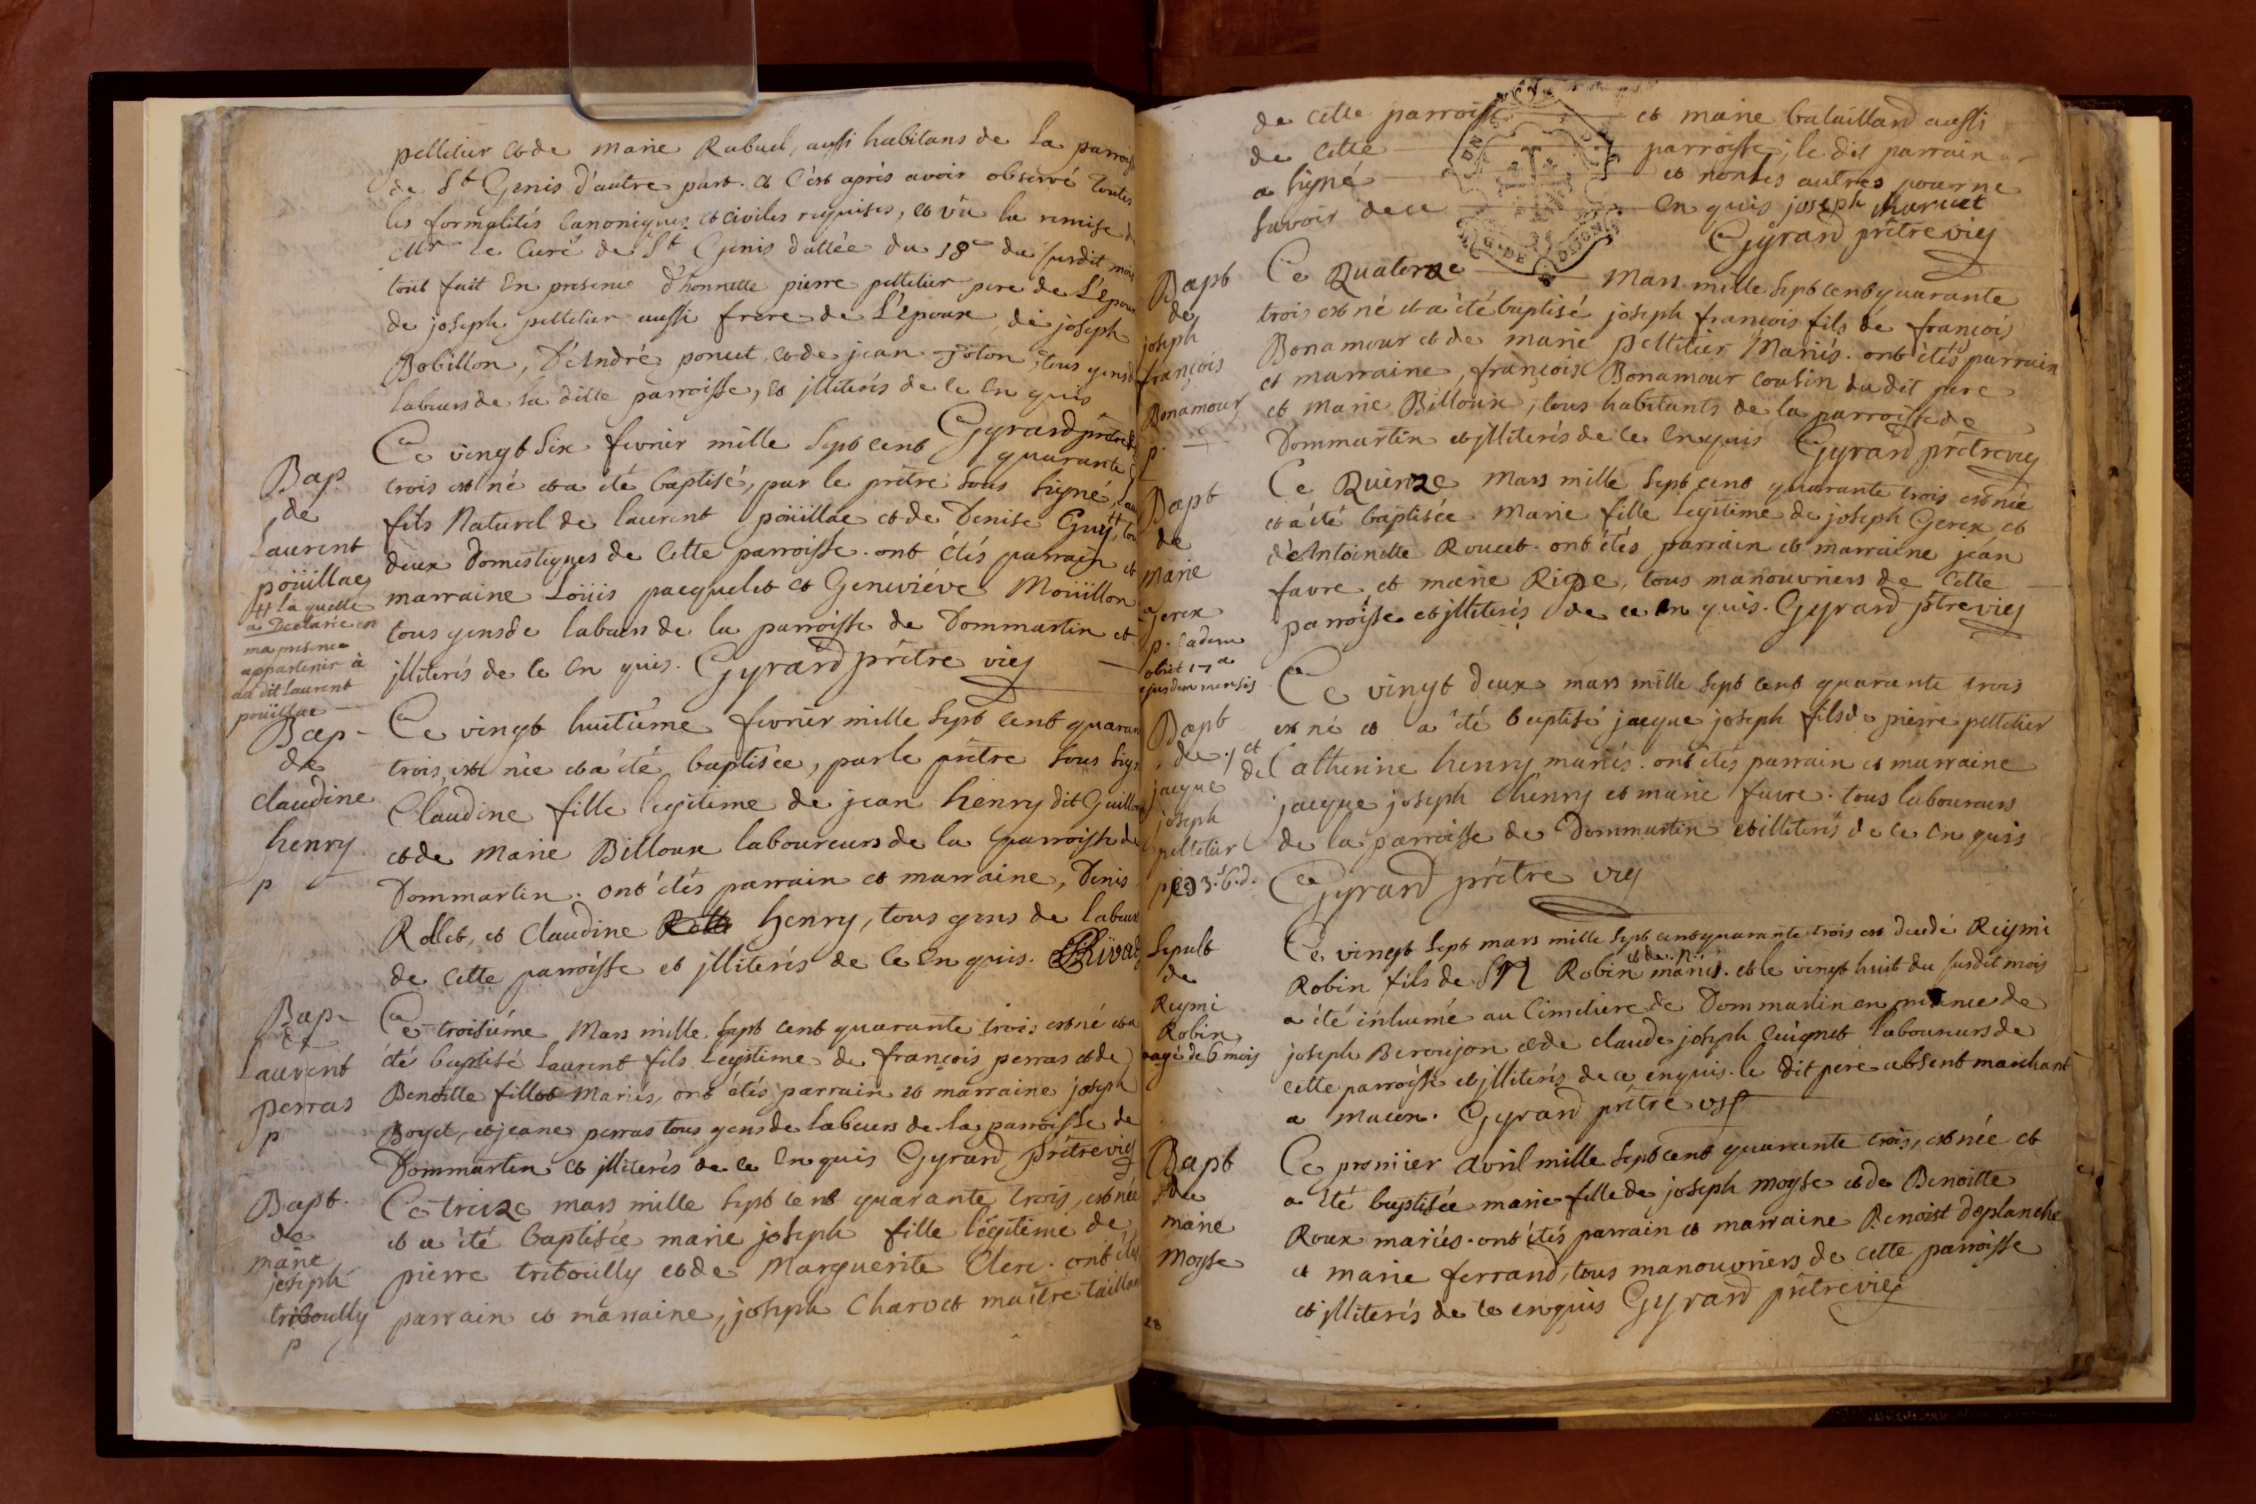 pelletier et de marie Rabuel, aussi habitans de la parroisse
de St Genis d'autre part. et c'est après avoir observé toutes
les formalités canoniques et civiles requises, et vü la remise de
Mr le Curé de St Genis dattée du 18e du susdit mois
tout fait En presence d'honnette pierre pelletier pere de L'epoux
de joseph pelletier aussi frere de L'epoux, de joseph
Bobillon, D'André poncet, et de jean joton, tous gens de
labeurs de la ditte parroisse, et jlliterés de ce En quis
Gyrard prêtre
Bap
de
Laurent
poüillac
# la quelle
a Declarée en
ma presence
appartenir à
au dit Laurent
poüillac
Ce vingt Six fevrier mille sept cent quarante
trois est né et a été baptisé, par le prêtre sous signé,
fils Naturel de laurent poüillac et de Denise Guy, # tous
deux Domestiques de Cette parroisse. ont étés parrain et
marraine Loüis pacquelet et Geneviéve Moüillon
tous gens de labeurs de la parroisse de Dommartin et
jlliterés de ce En quis. Gyrard prêtre vic
Bap
de
claudine
henry
p
Ce vingt huitiême fevrier mille sept cent quaran
trois, est née et a été baptisée, par le prêtre sous sig
Claudine fille legitime de jean henry dit Guillon
et de Marie Billoux laboureurs de la parroisse de
Dommartin. ont étés parrain et marraine, Denis
Rollet, et Claudine henry, tous gens de labeur
de cette parroisse et jlliterés de ce En quis.
Bap
Laurent
perras
p
Ce troisiéme Mars mille sept cent quarante trois est né et a
été baptisé Laurent fils Legitime de françois perras et de
Benoitte fillet Mariés, ont étés parrain et marraine joseph
Boyet, et jeane perras tous gens de labeurs de la parroisse de
Dommartin et jlliterés de ce En quis Gyrard prêtre vic
Bapt.
de
marie
joseph
tribouilly
p
Ce treize mars mille sept cent quarante trois, est née
et a été baptisée marie joseph fille légitime de
pierre tribouilly et de Marguerite Clerc. ont étés
parrain et marraine, joseph Charvet maître tailleur
de cette parroisse et marie bataillard aussi
de cette parroisse, le dit parrain
a signé et non les autres pour ne
savoir de ce En quis joseph Charvet
Gyrard prêtre vic
Bapt
de
joseph
françois
Bonamour
p
Ce Quatorze Mars mille sept cent quarante
trois est né et a été baptisé joseph françois fils de françois
Bonamour et de marie pelletier Mariés. ont étés parrain
et marraine, françois Bonamour cousin du dit pere
et Marie Billoux, tous habitants de la parroisse de
Dommartin et jlliterés de ce Enquis Gyrard prêtre vic
Bapt
de
Marie
Gerex
p. Eadem
obiit 17a
ejusdem mensis
Ce Quinze Mars mille sept cent quarante trois est née
et a été baptisée Marie fille Legitime de joseph Gerex et
d'Antoinette Roucet. ont étés parrain et marraine jean
favre et marie Rige, tous manouvriers de cette
parroisse et jlliterés de ce En quis. Gyrard prêtre vic
Bapt
de
jacque
joseph
pelletier
Ce vingt deux mars mille sept cent quarante trois
est né et a été baptisé jacque joseph fils de pierre pelletier
et de Catherine henry mariés. ont étés parrain et marraine
jacque joseph Chenry et marie favre. tous laboureurs
de la parroisse de Dommartin et illiterés de ce En quis
Gyrard prêtre vic
Sepult
de
Reymi
Robin
agé de 6 mois
Ce vingt sept mars mille sept cent quarante trois est decedé Reymi
Robin fils de N Robin et de N mariés. et le vingt huit du susdit mois
a été inhumé au Cimetiere de Dommartin en presence de
joseph Beroujon et de claude joseph Cuignet laboureurs de
cette parroisse et jlliterés de ce enquis. le dit pere absent marchant
a Macon. Gyrard prêtre vic
Bapt
de
marie
Moyse
Ce premier Avril mille sept cent quarante trois, est née et
a été baptisée marie fille de joseph Moyse et de Benoitte
Roux mariés. ont étés parrain et marraine Benoist deplanche
et marie ferrand, tous manouvriers de cette parroisse
et jlliterés de ce enquis Gyrard prêtre vic